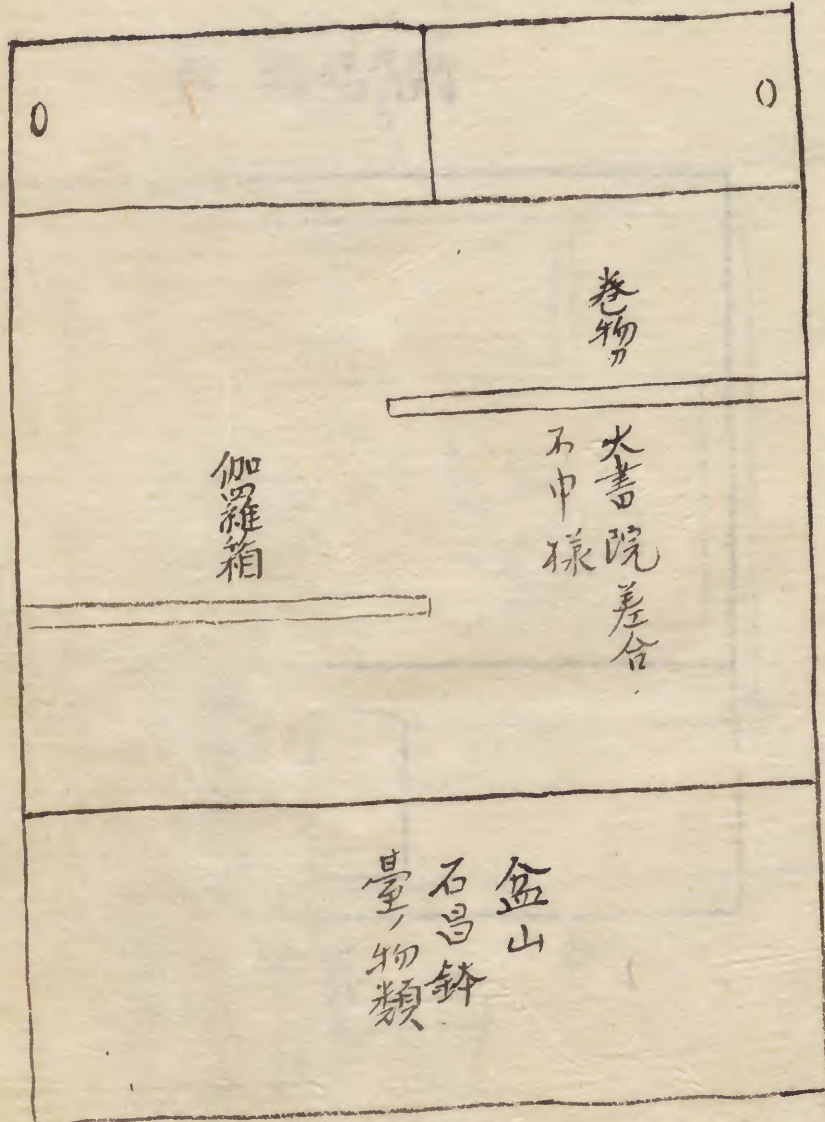 巻物
大書院差合
不申様
伽羅箱
盆山
石昌鉢
臺ノ物類